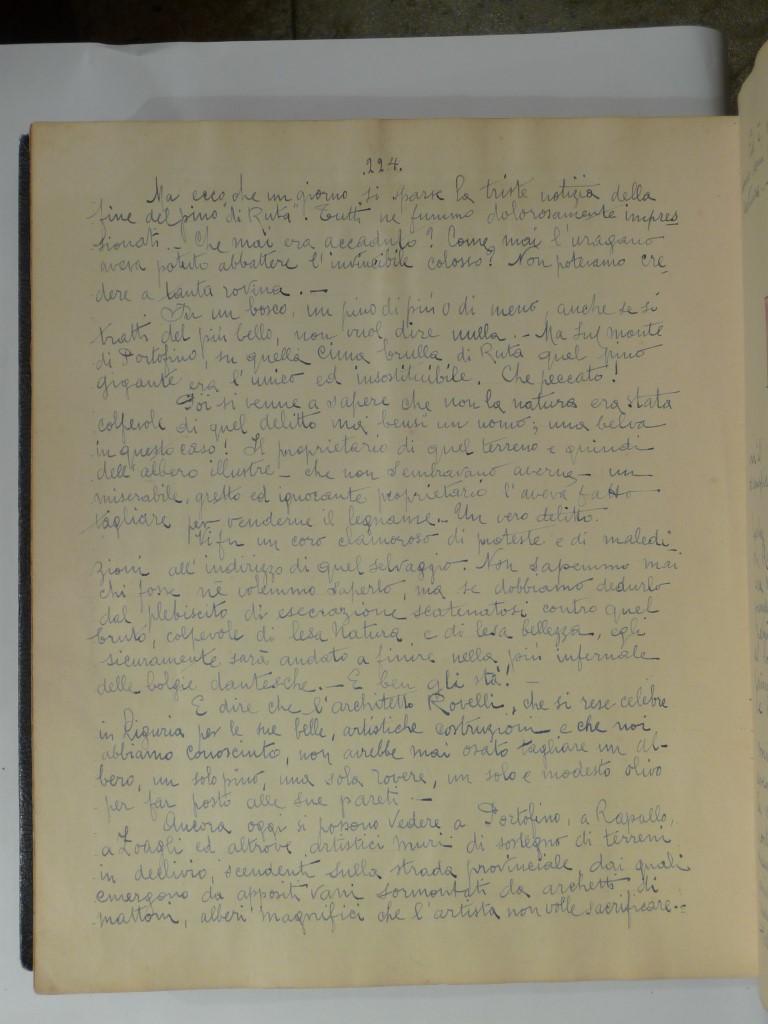 .224.
Ma ecco, che un giorno si sparse la triste notizia della
fine del "pino di Ruta". Tutti ne fummo dolorosamente impres
sionati.. Che mai era accaduto? Come mai l'uragano
aveva potuto abbattere l'invincibile colosso? Non potevamo cre
dere a tanta rovina. –
Per un bosco, un pino di più o di meno, anche se si
tratti del più bello, non vuol dire nulla. – Ma sul monte
di Portofino, su quella cima brulla di Ruta quel pino
gigante era l'unico ed insostituibile. Che peccato!
Poi si venne a sapere che non la natura era stata
colpevole di quel delitto mai bensì un uomo; una belva
in questo caso! Il proprietario di quel terreno e quindi
dell'albero illustre – che non sembravano averne – un
miserabile, gretto ed ignorante proprietario l'aveva fatto
tagliare per venderne il legname.. Un vero delitto.
Vi fu un coro clamoroso di proteste e di maledi
zioni all'indirizzo di quel selvaggio. Non sapemmo mai
chi fosse nè volemmo saperlo, ma se dobbiamo dedurlo
dal plebiscito di esecrazione scatenatosi contro quel
bruto, colpevole di lesa Natura e di lesa bellezza, egli
sicuramente sarà andato a finire nella più infernale
delle bolgie dantesche. – E ben gli stà! –
E dire che l'architetto Rovelli, che si rese celebre
in Liguria per le sue belle, artistiche costruzioni e che noi
abbiamo conosciuto, non avrebbe mai osato tagliare un al-
bero, un solo pino, una sola rovere, un solo e modesto olivo
per far posto alle sue pareti –
Ancora oggi si possono vedere a Portofino, a Rapallo,
a Zoagli ed altrove artistici muri di sostegno di terreni
in dellivio, scendenti sulla strada provinciale, dai quali
emergono da appositi vani sormontati da archetti di
mattoni, alberi magnifici che l'artista non volle sacrificare..